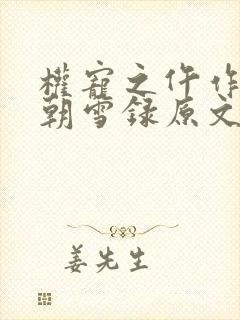 權寵之仵作
朝雪録原文
姜先生